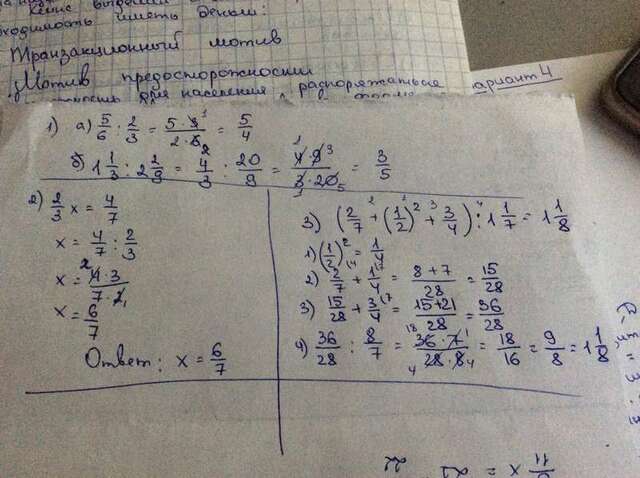 Кейнс выделил
ходимость иметь деньги:
Транзакционный мотив
Мотив предосторожности
для населения распоряжаться
вариант 4
1) а) 5/6 : 2/3 = 5·3/2·6 = 5/4
б) 1 1/3 : 2 2/9 = 4/3 : 20/9 = 4·9/3·20 = 3/5
2) 2/3 x = 4/7
x = 4/7 : 2/3
x = 4·3/7·2
x = 6/7
Ответ: x = 6/7
3) (2/7 + (1/2)² + 3/4) : 1 1/7 = 1 1/8
1) (1/2)² = 1/4
2) 2/7 + 1/4 = 8+7/28 = 15/28
3) 15/28 + 3/4 = 15+21/28 = 36/28
4) 36/28 : 8/7 = 36·7/28·8 = 18/16 = 9/8 = 1 1/8